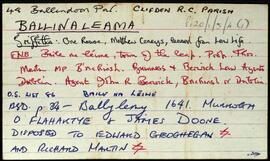 49 Ballindoon Par. CLIFDEN R.C. PARISH
BALLINALEAMA
Griffiths: One House, Matthew Conneys, leased from Law Life
ENB Baile na léime, town of the leap. Prop. Thos.
Martin MP B'nahinch. Robinson & Berwick Law Agents
Dublin. Agent John R Berwick, B'nahinch or Dublin
O.S. LIST 86 BAILE NA LÉIME
BSD. p 34 - Ballyleny 1641. MURROUGH
O FLAHARTYE & JAMES DOONE.
DISPOSED TO EDWARD GEOGHEGAN
AND RICHARD MARTIN